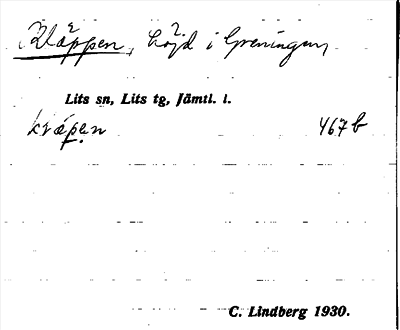 Kläppen, höjd i Greningen,
Lits sn, Lits tg, Jämtl. l.
467 b
C. Lindberg 1930.